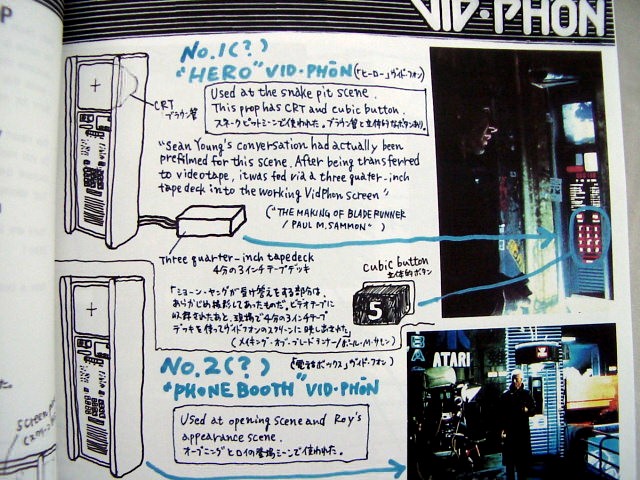 VID·PHŌN
No.1(?)
"HERO" VID·PHŌN (「ヒーロー」ヴィド・フォン)
Used at the snake pit scene.
This prop has CRT and cubic button.
スネークピットシーンで使われた。ブラウン管と立体的なボタンあり。
CRT
ブラウン管
"Sean Young's conversation had actually been
prefilmed for this scene. After being transferred
to videotape, it was fed via a three quater-inch
tape deck into the working VidPhon screen"
("THE MAKING OF BLADE RUNNER
/ PAUL M. SAMMON")
Three quarter-inch tapedeck
4分の3インチテープデッキ
cubic button
立体的ボタン
5
「ショーン・ヤングが受け答えをする部分は、
あらかじめ撮影してあったものだ。ビデオテープに
収録されたあと、現場で4分の3インチテープ
デッキを使ってヴィドフォンのスクリーンに映し出された」
(メイキング・オブ・ブレードランナー/ポール・M・サモン)
No.2(?)
(「電話ボックス」ヴィド・フォン)
"PHONE BOOTH" VID·PHŌN
Used at opening scene and Roy's
appearance scene.
オープニングとロイの登場シーンで使われた。
ATARI